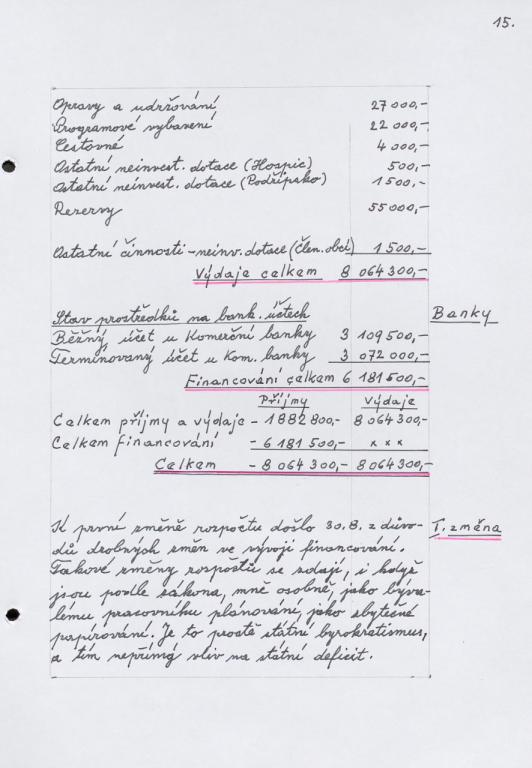 15.
Opravy a udržování 27 000,-
Programové vybavení 22 000,-
Cestovné 4 000,-
Ostatní neinvest. dotace (Hospic) 500,-
Ostatní neinvest. dotace (Podřipsko) 1 500,-
Rezervy 55 000,-
Ostatní činnosti - neinv. dotace (člen. obcí) 1 500,-
Výdaje celkem 8 064 300,-
Stav prostředků na bank. účtech Banky
Běžný účet u Komerční banky 3 109 500,-
Termínovaný účet u Kom. banky 3 072 000,-
Financování celkem 6 181 500,-
Příjmy Výdaje
Celkem příjmy a výdaje - 1 882 800,- 8 064 300,-
Celkem financování - 6 181 500,- x x x
Celkem - 8 064 300,- 8 064 300,-
K první změně rozpočtu došlo 30.8. z důvo- I. změna
dů drobných změn ve vývoji financování.
Takové změny rozpočtů se zdají, i když
jsou podle zákona, mně osobně, jako býva-
lému pracovníku plánování, jako zbytečné
papírování. Je to prostě státní byrokratismus,
a tím nepřímý vliv na státní deficit.